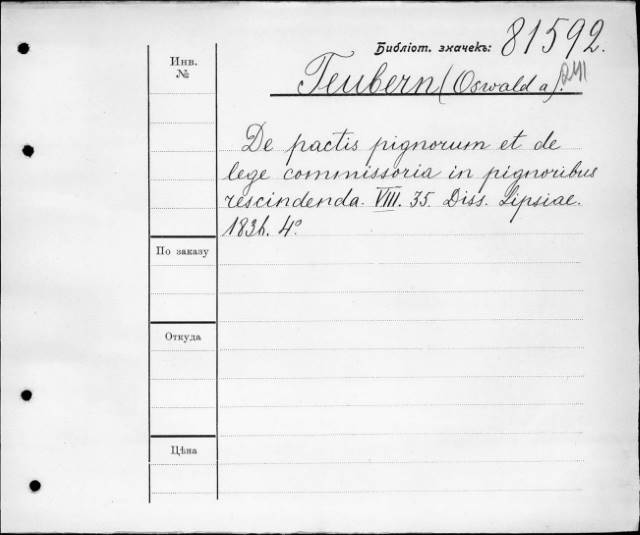 Библіот. значекъ: 81592.
Инв.
№
Teubern (Oswald a).
De pactis pignorum et de
lege commissoria in pignoribus
rescindenda. VIII. 35. Diss. Lipsiae.
1836. 4°
По заказу
Откуда
Цѣна